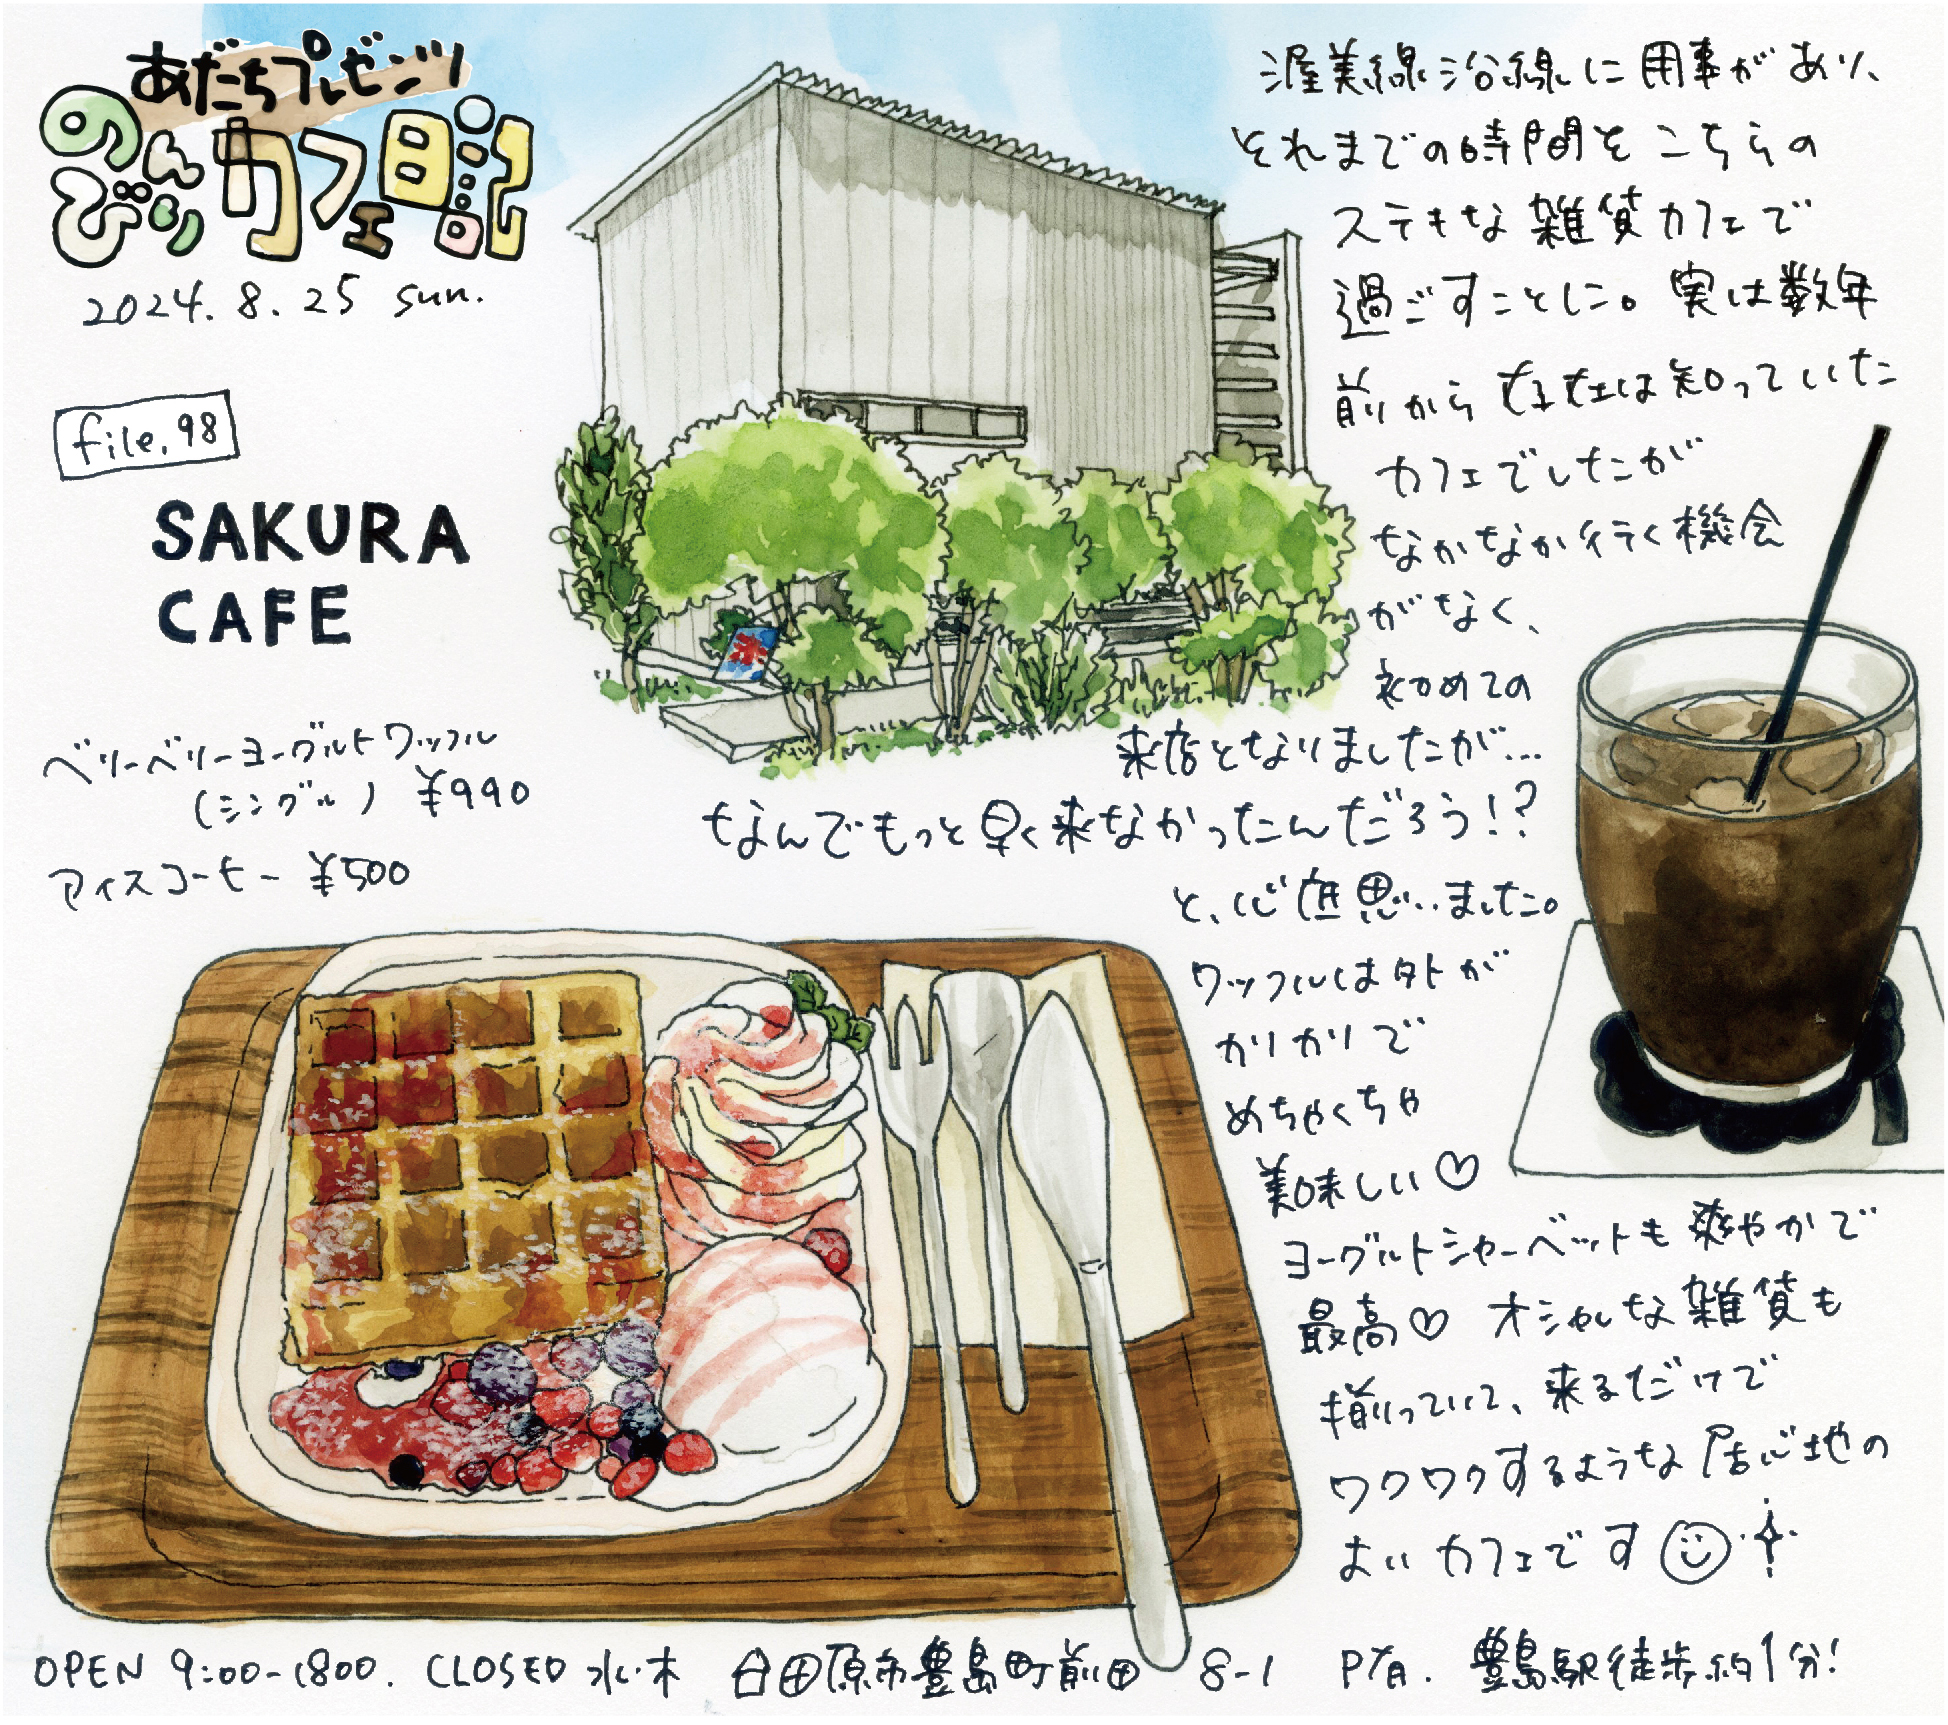 あだちプレゼンツ
のんびりカフェ日記
2024.8.25 sun.
file.98
SAKURA
CAFE
ベリーベリーヨーグルトワッフル
(シングル) ¥990
アイスコーヒー ¥500
渥美線沿線に用事があり、
それまでの時間をこちらの
ステキな雑貨カフェで
過ごすことに。実は数年
前から存在は知っていた
カフェでしたが
なかなか行く機会
がなく、
初めての
来店となりましたが…
なんでもっと早く来なかったんだろう!?
と、心底思いました。
ワッフルは外が
カリカリで
めちゃくちゃ
美味しい♡
ヨーグルトシャーベットも爽やかで
最高♡ オシャレな雑貨も
揃っていて、来るだけで
ワクワクするような居心地の
よいカフェです
氷
OPEN 9:00-1800. CLOSED 水・木 田原市豊島町前田 8-1 P有. 豊島駅徒歩約1分!